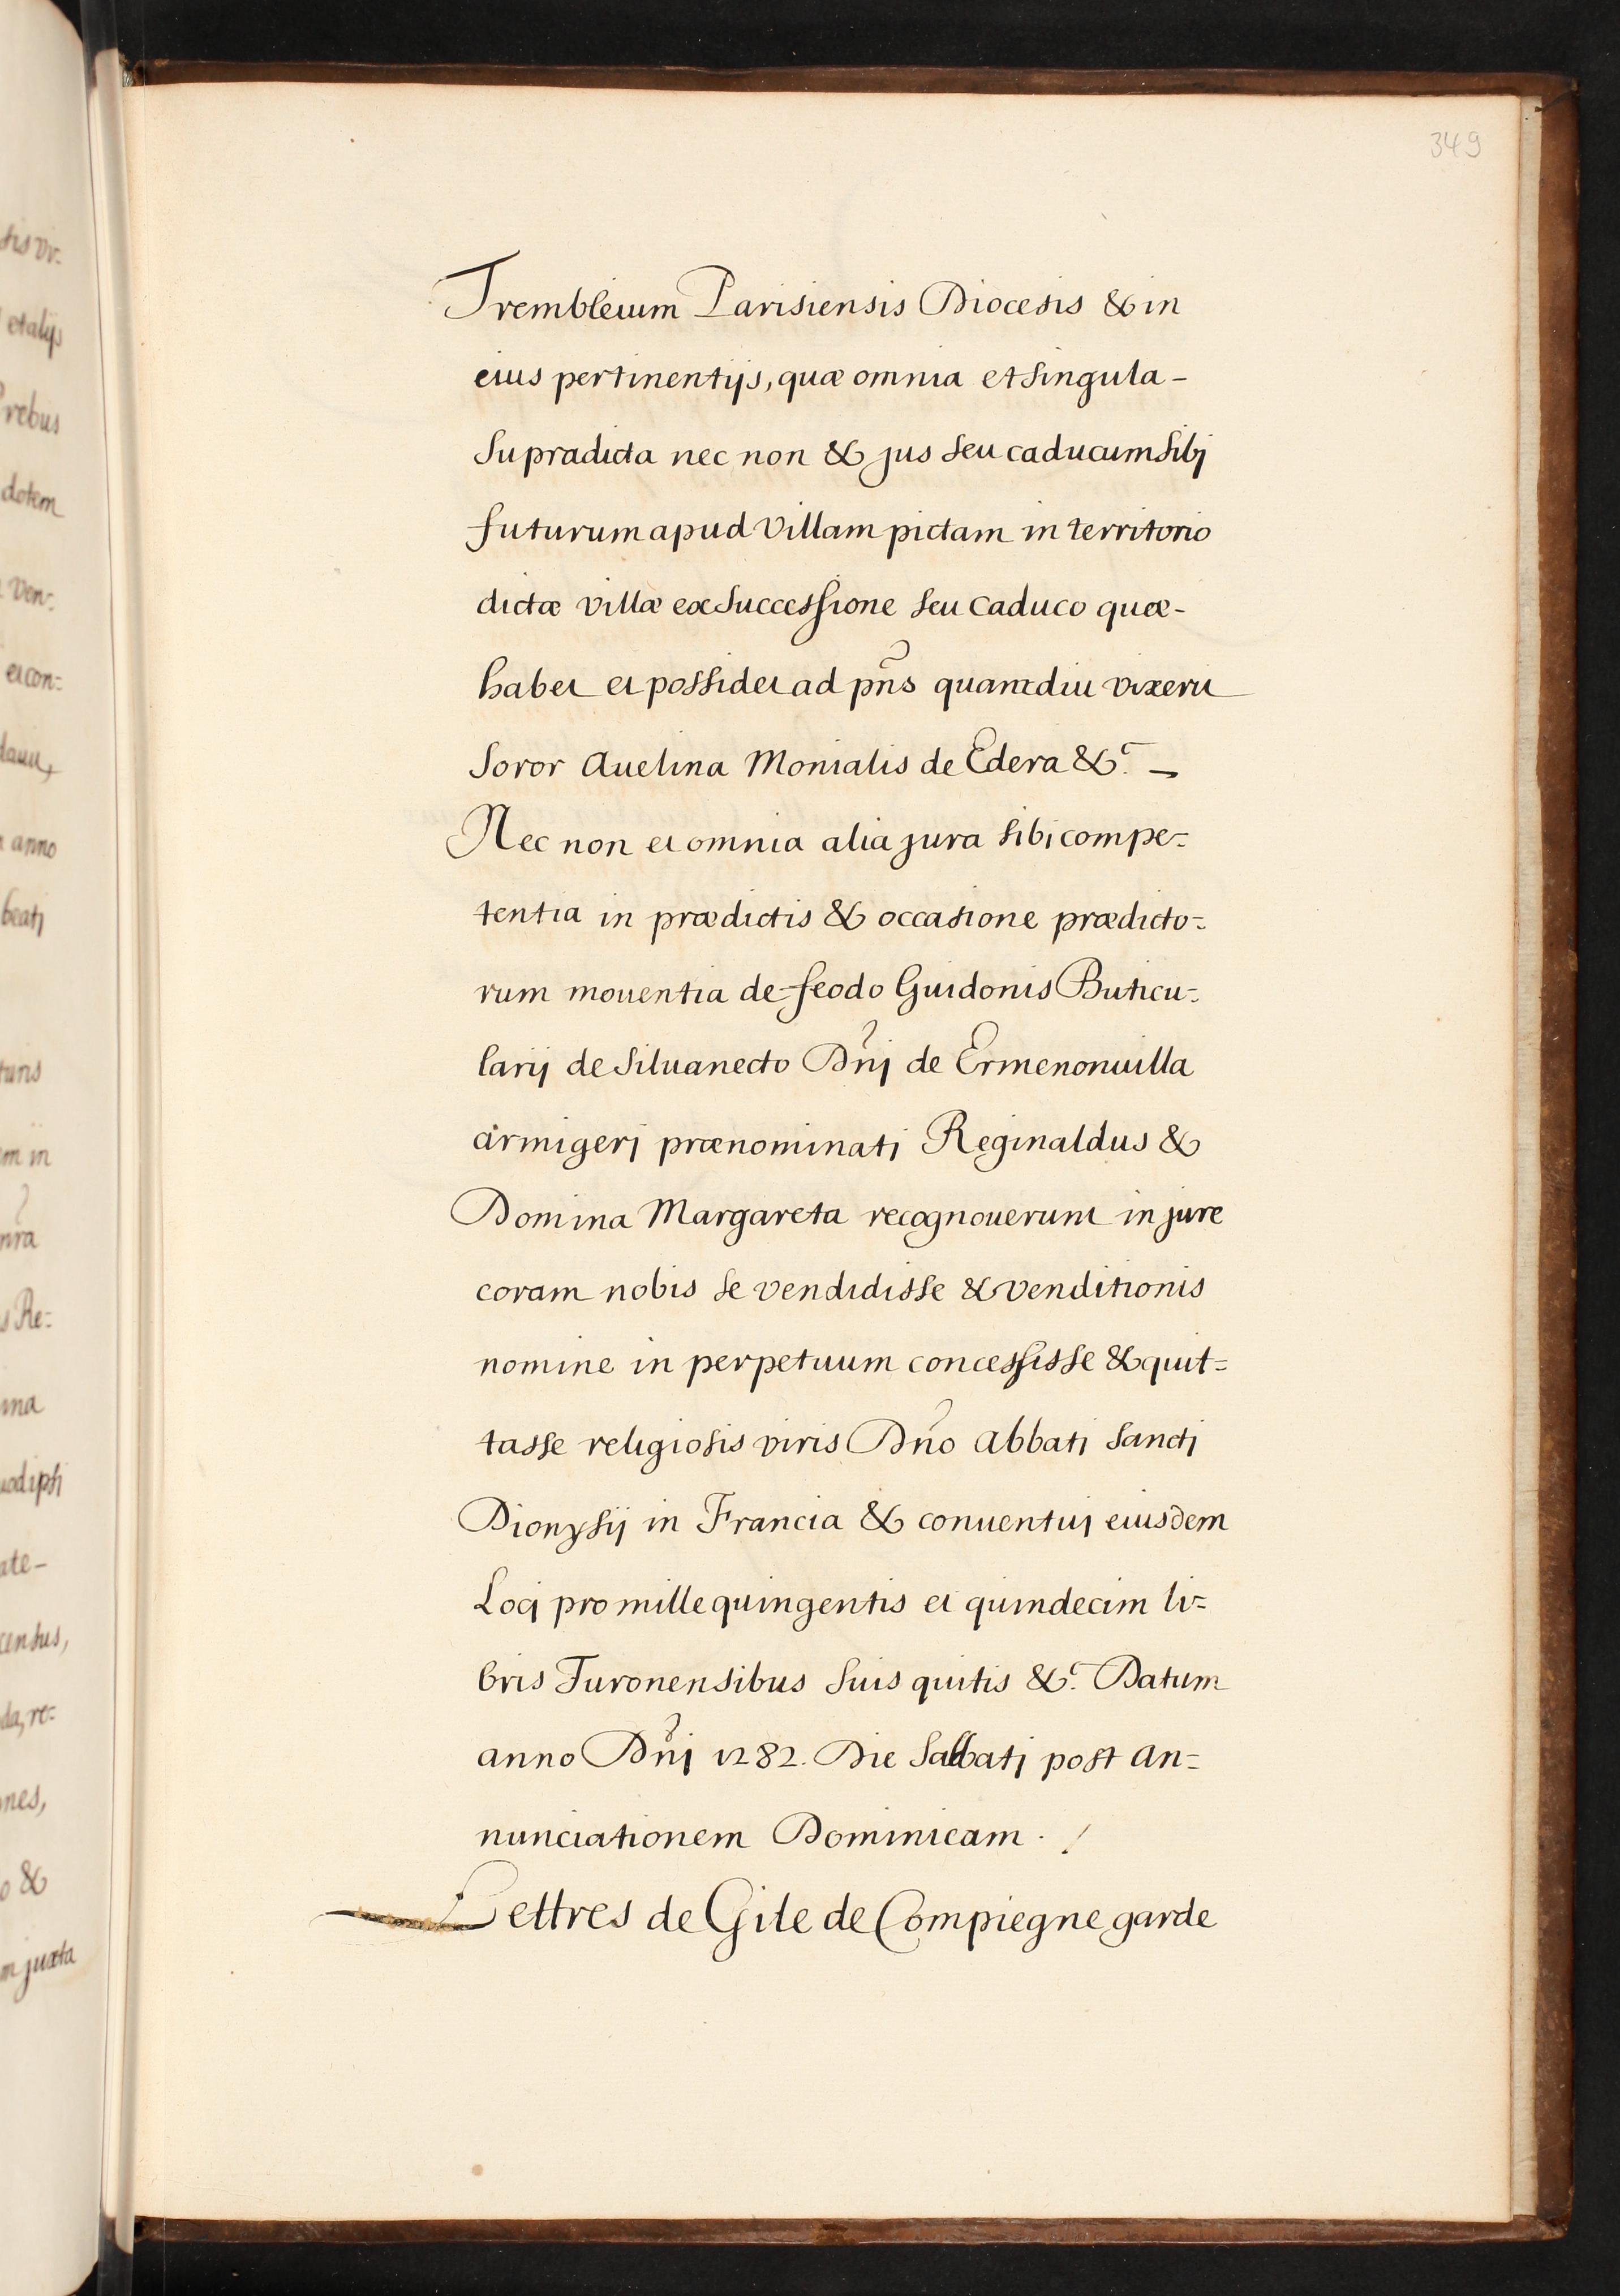 349
Trembleium Parisiensis Diocesis & in
eius pertinentijs, quæ omnia et singula -
supradicta nec non & jus seu caducum sibj
futurum apud Villam pictam in territorio
dictæ villæ ex successione seu caduco quæ -
habet et possidet ad pñs quamdiu vixerit
soror Auelina Monialis de Edera &c. -
Nec non et omnia alia jura sibi compe=
tentia in prædictis & occasione prædicto=
rum mouentia de feodo Guidonis Buticu=
larij de Siluanecto Dñj de Ermenonuilla
armigerj prænominatj Reginaldus &
Domina Margareta recognouerunt in jure
coram nobis se vendidisse & venditionis
nomine in perpetuum concessisse & quit=
tasse religiosis viris Dño Abbatj Sanctj
Dionysij in Francia & conuentuj eiusdem
Locj pro mille quingentis et quindecim li=
bris Turonensibus suis quitis &c. Datum
anno Dñj 1282. Die Sabbatj post An=
nunciationem Dominicam. /
Lettres de Gile de Compiegne garde